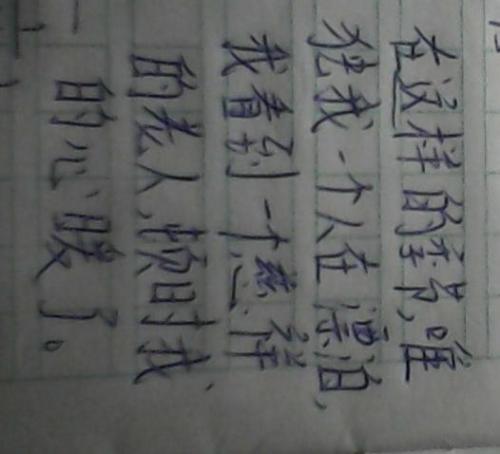 在这样的季节,唯
独我一个人在漂泊,
我看到一个慈祥
的老人,顿时我
的心暖了。